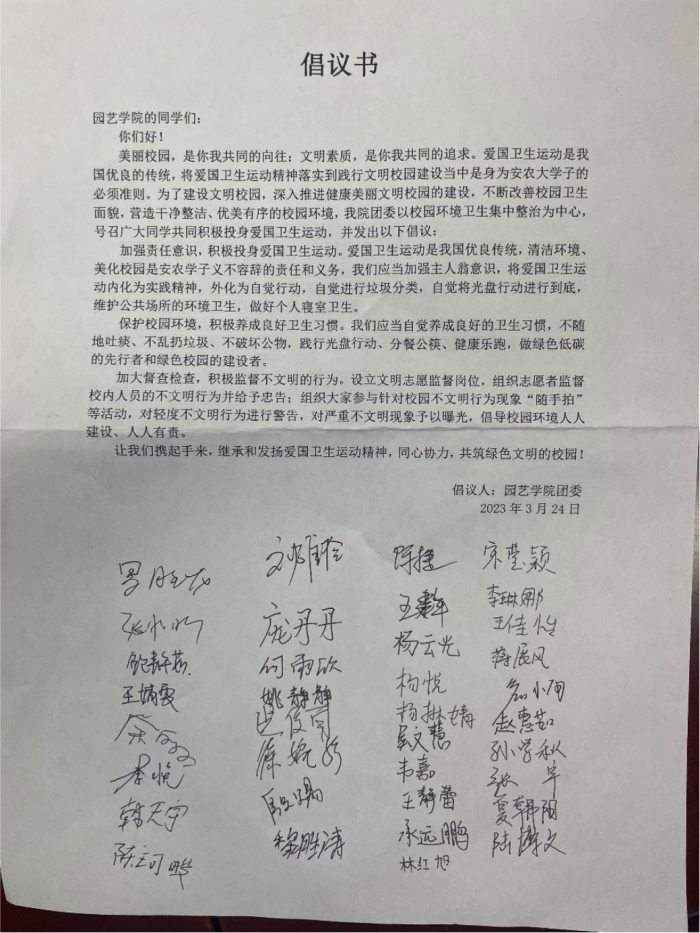 倡议书
园艺学院的同学们：
你们好！
美丽校园，是你我共同的向往；文明素质，是你我共同的追求。爱国卫生运动是我
国优良的传统，将爱国卫生运动精神落实到践行文明校园建设当中是身为安农大学子的
必须准则。为了建设文明校园，深入推进健康美丽文明校园的建设，不断改善校园卫生
面貌，营造干净整洁、优美有序的校园环境，我院团委以校园环境卫生集中整治为中心，
号召广大同学共同积极投身爱国卫生运动，并发出以下倡议：
加强责任意识，积极投身爱国卫生运动。爱国卫生运动是我国优良传统，清洁环境、
美化校园是安农学子义不容辞的责任和义务，我们应当加强主人翁意识，将爱国卫生运
动内化为实践精神，外化为自觉行动，自觉进行垃圾分类，自觉将光盘行动进行到底，
维护公共场所的环境卫生，做好个人寝室卫生。
保护校园环境，积极养成良好卫生习惯。我们应当自觉养成良好的卫生习惯，不随
地吐痰、不乱扔垃圾、不破坏公物，践行光盘行动、分餐公筷、健康乐跑，做绿色低碳
的先行者和绿色校园的建设者。
加大督查检查，积极监督不文明的行为。设立文明志愿监督岗位，组织志愿者监督
校内人员的不文明行为并给予忠告；组织大家参与针对校园不文明行为现象“随手拍”
等活动，对轻度不文明行为进行警告，对严重不文明现象予以曝光，倡导校园环境人人
建设、人人有责。
让我们携起手来，继承和发扬爱国卫生运动精神，同心协力，共筑绿色文明的校园！
倡议人：园艺学院团委
2023 年 3 月 24 日
陈捷 宋莹颖
李琳娜
庞丹丹 杨云光 王佳怡
何雨欣 蒋展风
杨悦
姚静静 杨琳婧 赵惠茹
孙学秋
李悦 韦嘉
韩天宇 王静蕾 夏朝阳
承远鹏 陆博文
林红旭